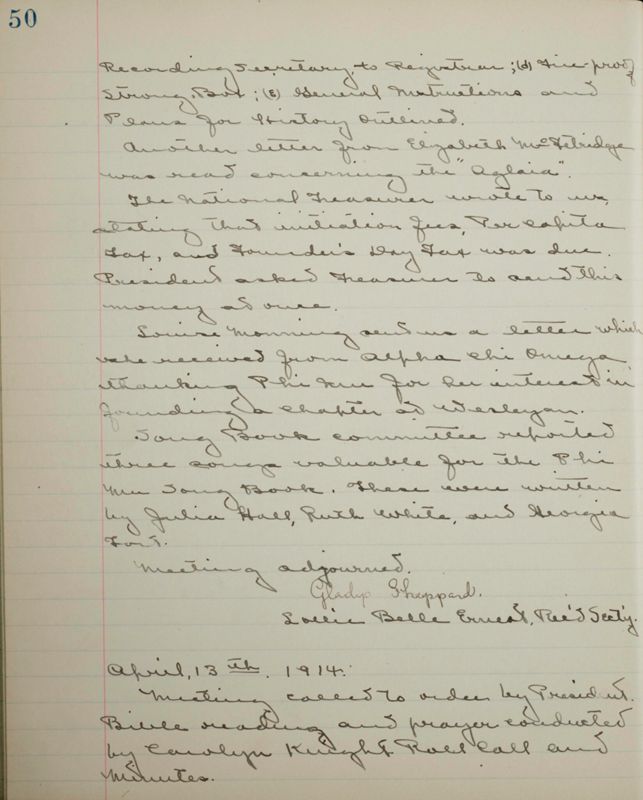 50
Recording Secretary to Registrar; (d) Fire-proof
Strong Box; (e) General Instructions and
Plans for History Outlined.
Another letter from Elizabeth McFetridge
was read concerning the "Aglaia".
The National Treasurer wrote to us,
stating that initiation fees, Per Capita
Tax, and Founder's Day Tax was due.
President asked Treasurer to send this
money at once.
Louise Monning sent us a letter which
she received from Alpha Chi Omega
thanking Phi Mu for her interest in
founding a chapter at Wesleyan.
Song Book committee reported
three songs valuable for the Phi
Mu Song Book. These were written
by Julia Hall, Ruth White, and Georgia
Fort.
Meeting adjourned.
Gladys Sheppard.
Lollie Belle Ernest, Rec'd Sect'y.
April, 13th. 1914.
Meeting called to order by President.
Bible reading and prayer conducted
by Carolyn Knight. Roll Call and
Minutes.